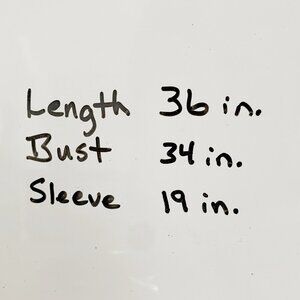 Length 36 in.
Bust 34 in.
Sleeve 19 in.